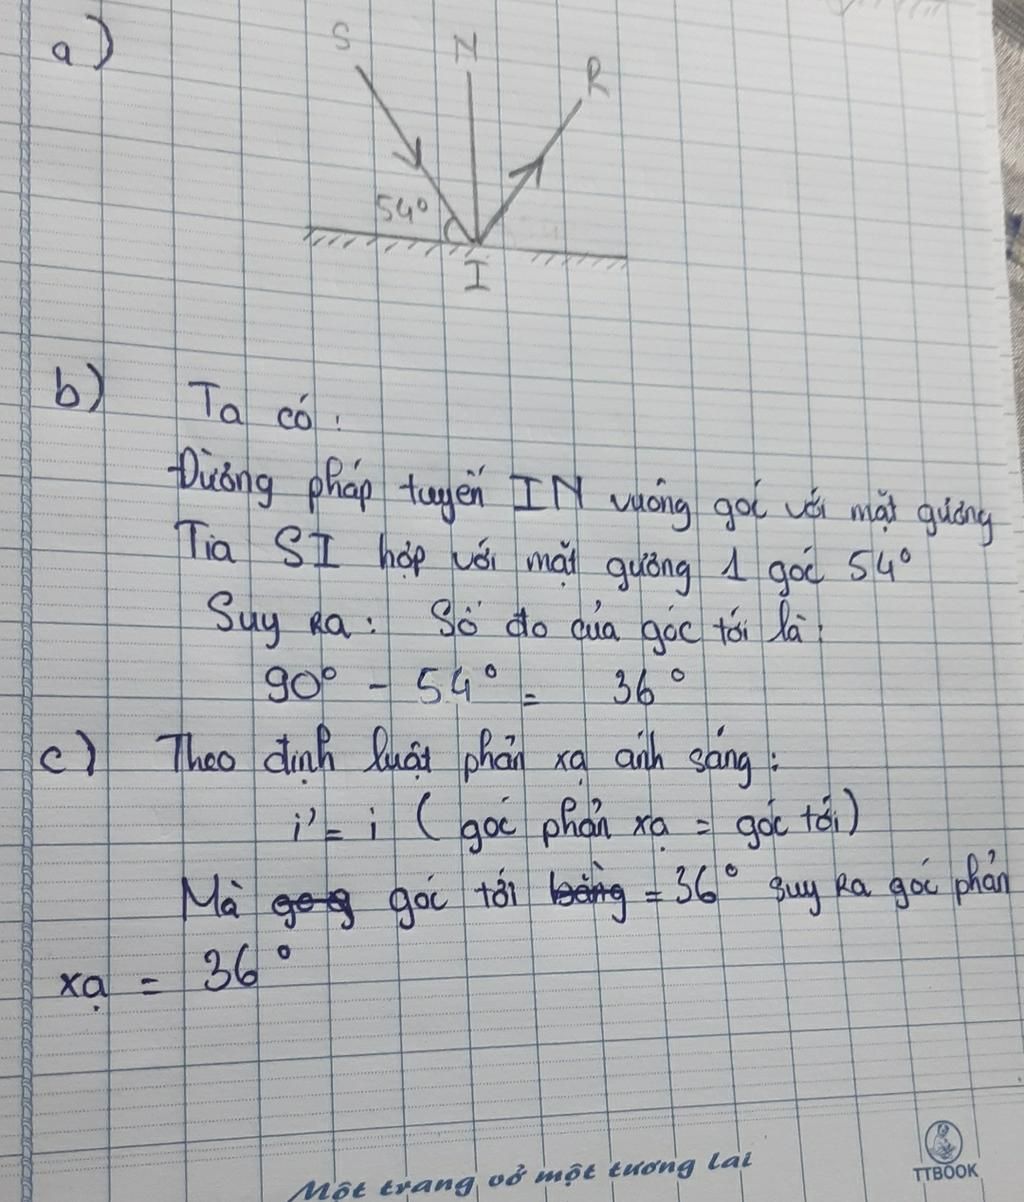 a)
S N R
54°
I
b) Ta có:
Đường pháp tuyến IN vuông góc với mặt gương
Tia SI hợp với mặt gương 1 góc 54°
Suy Ra: Số đo của góc tới là:
90° - 54° = 36°
c) Theo định luật phản xạ ánh sáng:
i' = i (góc phản xạ = góc tới)
Mà gog góc tới bằng = 36° suy Ra góc phản
xạ = 36°
Một trang vở một tương lai
TTBOOK